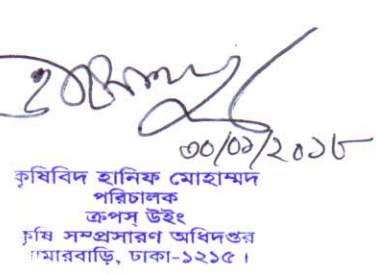 ৩০/০১/২০১৮
কৃষিবিদ হানিফ মোহাম্মদ
পরিচালক
ক্রপস্ উইং
কৃষি সম্প্রসারণ অধিদপ্তর
খামারবাড়ি, ঢাকা-১২১৫।